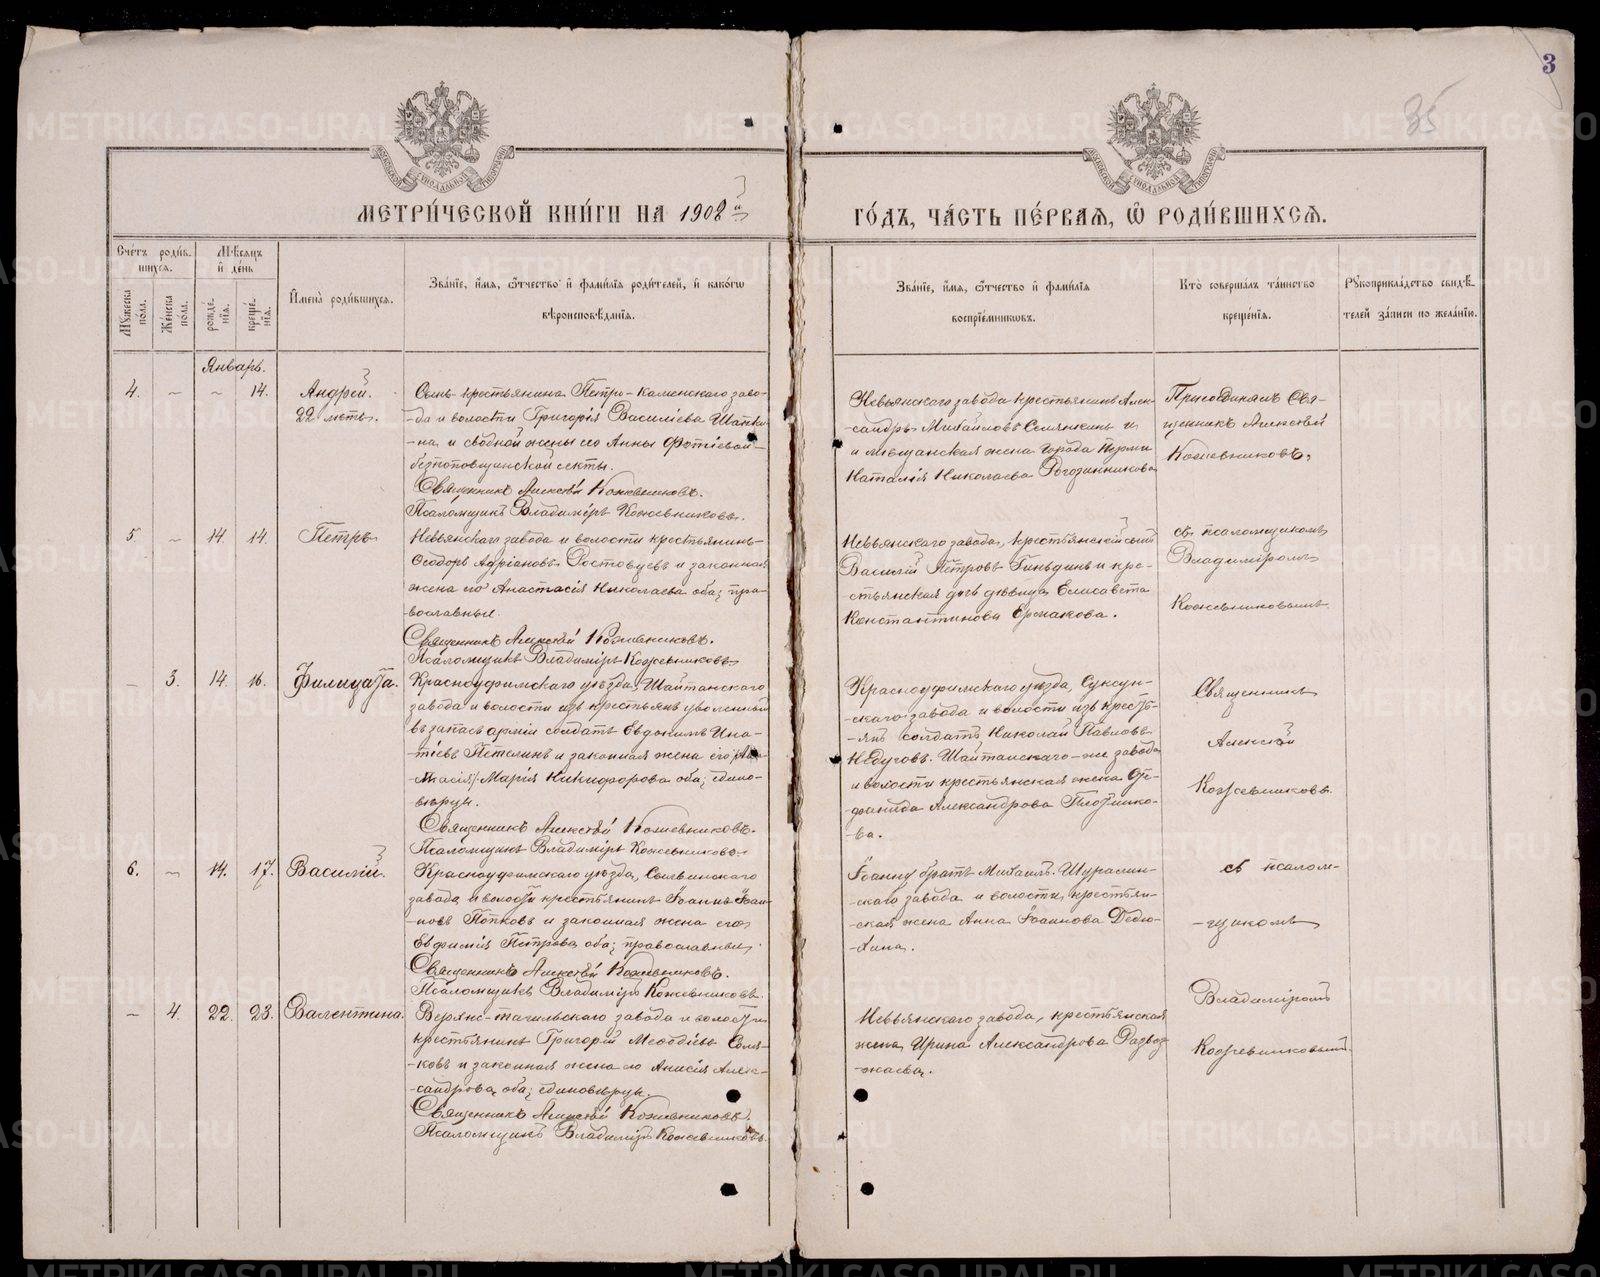 3
35
МЕТРИ́ЧЕСКОЙ КНИ́ГИ НА 1902й
ГО́ДЪ, ЧА́СТЬ ПЕ́РВАЯ, Ѡ РОДИ́ВШИХСЯ.
Сче́тъ роди́в-
шихся.
Мѣ́сяцъ
и де́нь
Мꙋжеска по́ла.
Же́нска пола.
рожде́нїя.
креще́нїя.
И҆мена̀ роди́вшихся.
Зва́нїе, и҆́мя, ѻ҆́тчество и҆ фамѝлїя роди́телей, и҆ како́гѡ
вѣроисповѣ́данїя.
Зва́нїе, и҆́мя, ѻ҆́тчество и҆ фамѝлїя
воспрїе́мниковъ.
Кто̀ соверша́лъ та́инство
креще́нїя.
Рꙋкоприкла́дство свидѣ́-
телей за́писи по жела́нїю.
Январь.
4. - - 14. Андрей.
22 летъ.
Сынъ крестьянина Петро-Каменскаго заво-
да и волости Григорія Василіева
на и сводной жены его Анны Фотіевой
безпоповщинской секты.
Священникъ Алексѣй Кожевниковъ.
Псаломщикъ Владиміръ Кожевниковъ.
Невьянскаго завода крестьянинъ Алек-
-сандръ Михайловъ и
и мѣщанская жена города Перми
Наталія Николаева
Присоединялъ Свя-
щенникъ Алексѣй
Кожевниковъ,
5 - 14. 14. Петръ
Невьянскаго завода и волости крестьянинъ
Ѳеодоръ Адріановъ Ростовцевъ и законная
жена его Анастасія Николаева оба; пра-
вославные.
Священникъ Алексѣй Кожевниковъ.
Псаломщикъ Владиміръ Кожевниковъ
Невьянскаго завода, крестьянскій сынъ
Василій Петровъ и кре-
стьянская дочь девица Елисавета
Константинова Ермакова.
съ псаломщикомъ
Владиміромъ
Кожевниковымъ.
- 3. 14. 16. Филицата.
Красноуфимскаго уѣзда, Шайтанскаго
завода и волости изъ крестьянъ уволенный
въ запасъ арміи солдатъ Евдокимъ Игна-
-тіевъ Петелинъ и законная жена его
Марія Никифорова оба; едино-
вѣрцы.
Священникъ Алексѣй Кожевниковъ.
Псаломщикъ Владиміръ Кожевниковъ
Красноуфимскаго уѣзда, Суксун-
-скаго завода и волости изъ кресть-
-янъ солдатъ Николай Павловъ
Недуговъ. Шайтанскаго-же завода
и волости крестьянская жена
Александрова Плотнико-
-ва.
Священникъ
Алексѣй
Кожевниковъ
6. - 14. 17. Василій.
Красноуфимскаго уѣзда, Сылвинскаго
завода и волости крестьянинъ Іоаннъ Іоан-
новъ Попковъ и законная жена его
Евфимія Петрова оба; православные.
Священникъ Алексѣй Кожевниковъ.
Псаломщикъ Владиміръ Кожевниковъ.
Іоанну братъ Михаилъ. Шуралин-
скаго завода и волости, крестьян-
ская жена Анна Іоаннова Дедю-
-хина.
съ псалом-
-щикомъ
- 4. 22. 23. Валентина.
Верхне-тагильскаго завода и волости
крестьянинъ Григорій Меѳодіевъ
-ковъ и законная жена его Анисія Алек-
-сандрова, оба; единовѣрцы.
Священникъ Алексѣй Кожевниковъ.
Псаломщикъ Владиміръ Кожевниковъ.
Невьянскаго завода, крестьянская
жена, Ирина Александрова Развод-
-жаева.
Владиміромъ
Кожевниковымъ.